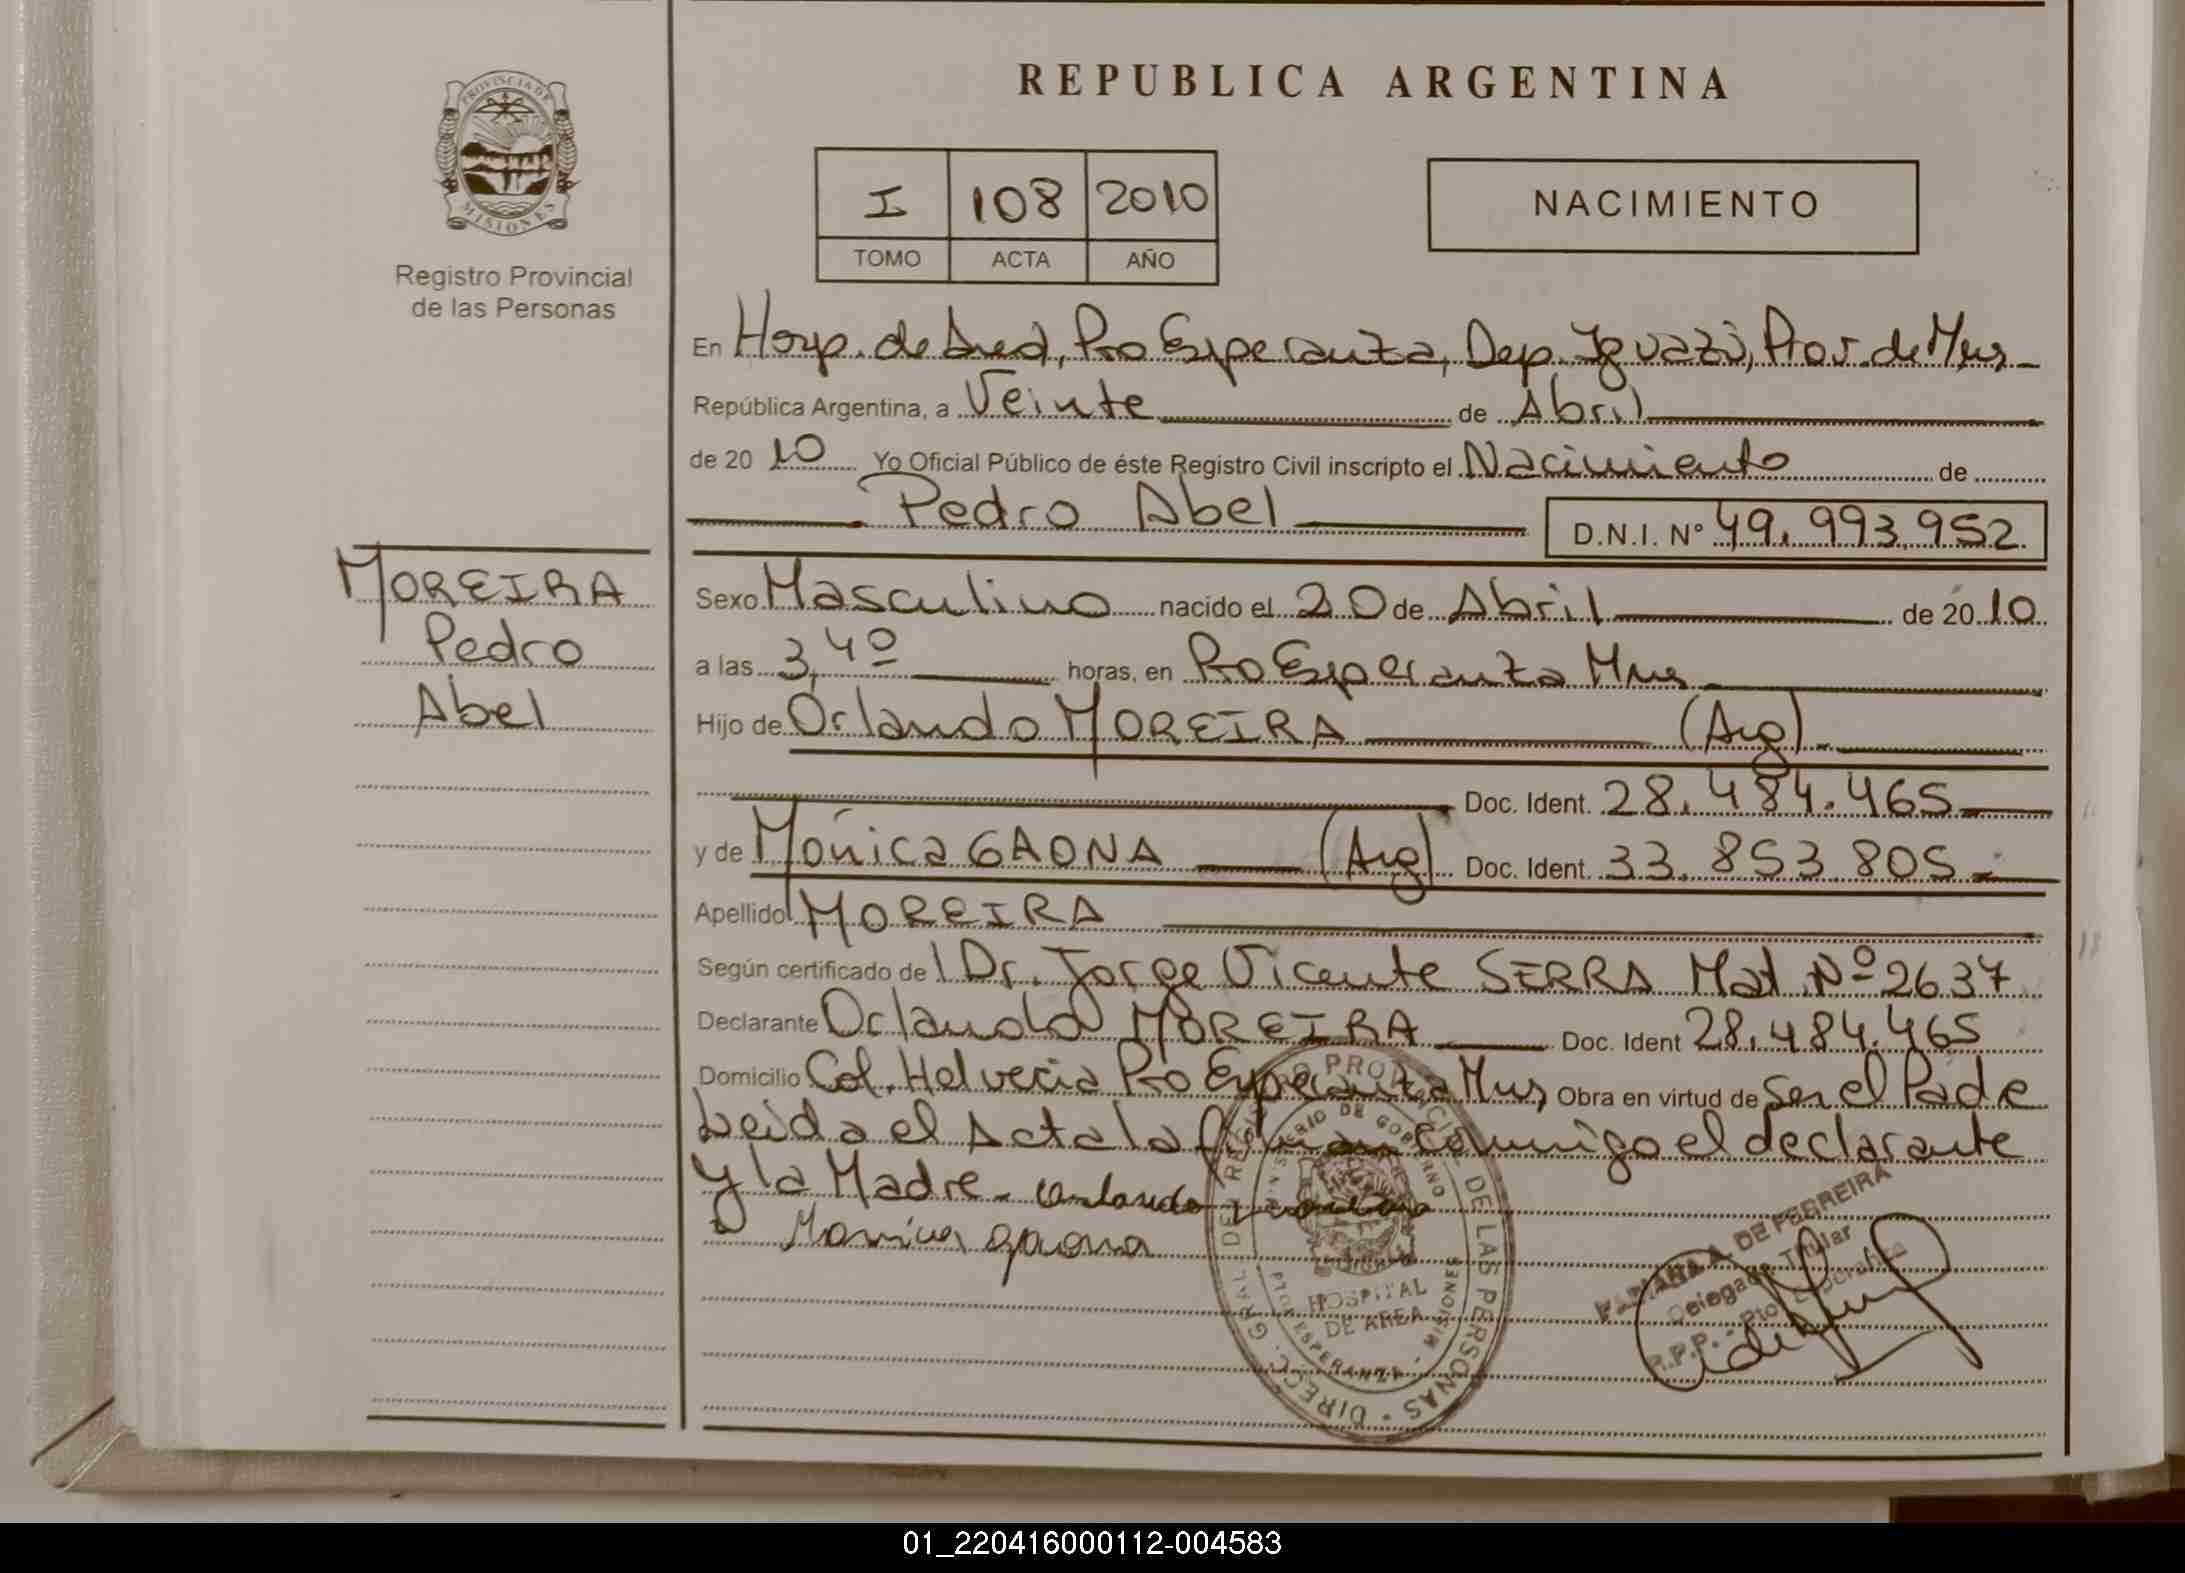 REPUBLICA ARGENTINA
PROVINCIA DE
MISIONES
Registro Provincial
de las Personas
I 108 2010
TOMO ACTA AÑO
NACIMIENTO
En Hosp. de Pto Esperanza, Dep. Iguazú, Prov. de Mnes
República Argentina, a Veinte de Abril
de 20 10 Yo Oficial Público de éste Registro Civil inscripto el Nacimiento de
Pedro Abel D.N.I. Nº 49.993.952
MOREIRA
Pedro
Abel
Sexo Masculino nacido el 20 de Abril de 20 10
a las 3,40 horas, en Pto Esperanza Mnes
Hijo de Orlando MOREIRA (Arg)
Doc. Ident. 28.484.465
y de Mónica GAONA (Arg) Doc. Ident. 33.853.805
Apellido MOREIRA
Según certificado del Dr. Jorge Vicente SERRA Mat. Nº 2637
Declarante Orlando MOREIRA Doc. Ident 28.484.465
Domicilio Col. Helvecia Pto Esperanza Mnes Obra en virtud de ser el Padre
Leida el Acta la firman conmigo el declarante
y la Madre. orlando
Monica gaona
DIRECC. GRAL. DEL REGISTRO PROVINCIAL DE LAS PERSONAS
MINISTERIO DE GOBIERNO
HOSPITAL
DE AREA
PTO. ESPERANZA - MISIONES
A. DE FERREIRA
Delegada Titular
R.P.P. - Pto
01_220416000112-004583